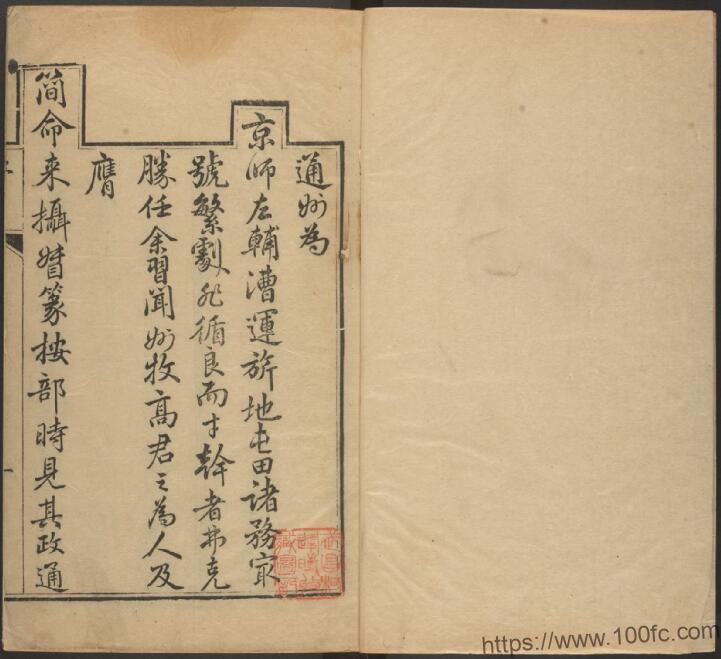 通州為
京師左輔漕運旂地屯田諸務㝡
號繁劇非循良而才幹者弗克
勝任余習聞州牧高君之為人及
膺
簡命来攝督篆按部時見其政通
https://www.100fc.com